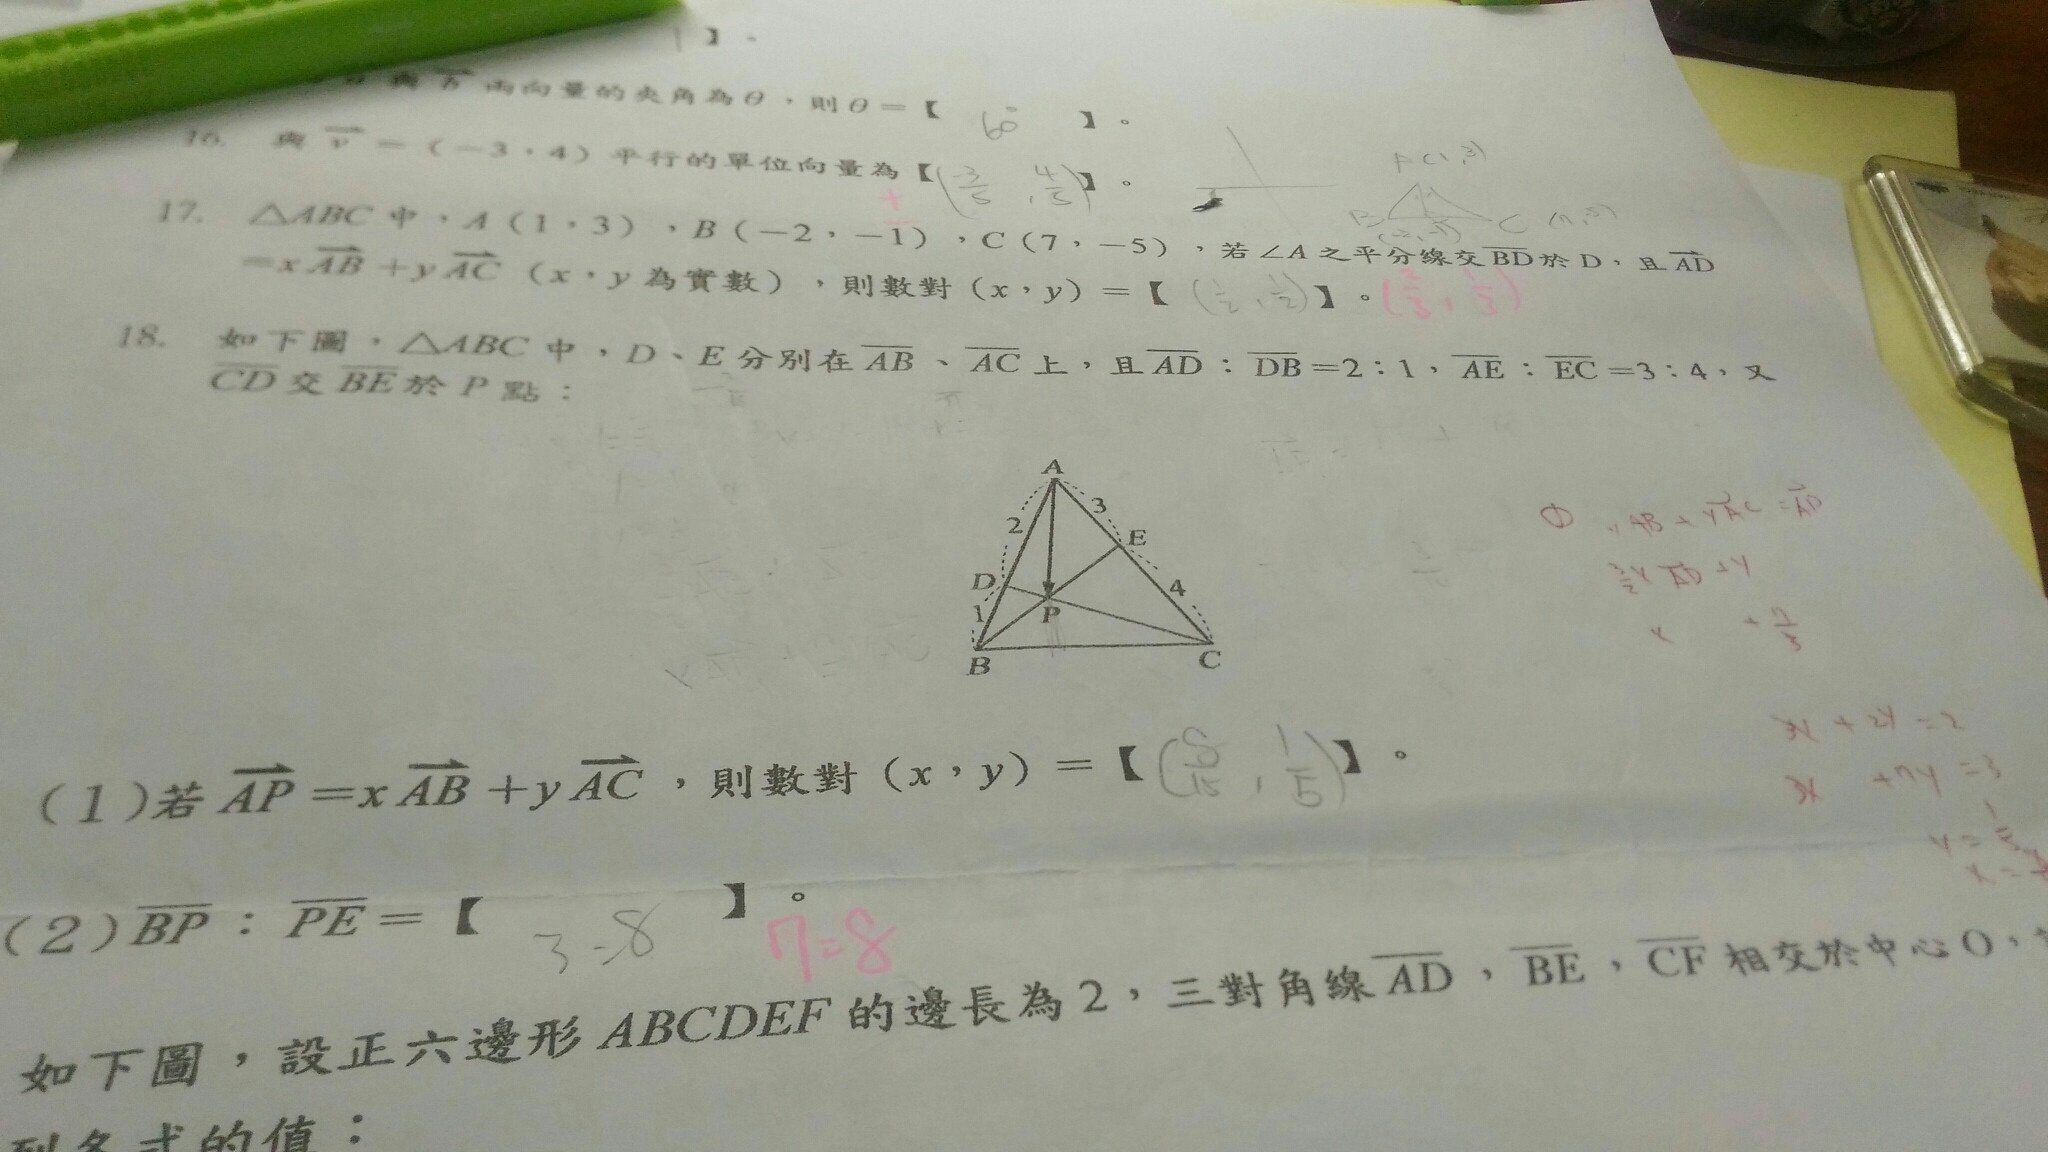 】。
與 b 兩向量的夾角為θ，則θ=【 60° 】。
16. 與 v =（-3，4）平行的單位向量為【(-3/5 , 4/5)】。
±
17. △ABC 中，A（1，3），B（-2，-1），C（7，-5），若∠A之平分線交BD於D，且AD
=xAB+yAC（x，y為實數），則數對（x，y）=【(1/2 , 1/2)】。
A(1,3)
B
C
18. 如下圖，△ABC 中，D、E分別在AB、AC上，且AD：DB=2：1，AE：EC=3：4，又
CD交BE於P點：
A
2
3
E
D
4
1
P
B
C
① xAB + yAC = AP
3x + 2y = 2
3x + 7y = 3
y = 1/5
(1)若AP=xAB+yAC，則數對（x，y）=【(8/15 , 1/5)】。
(2)BP：PE=【 3:8 】。 7=8
如下圖，設正六邊形ABCDEF的邊長為2，三對角線AD，BE，CF相交於中心O，
列各式的值：